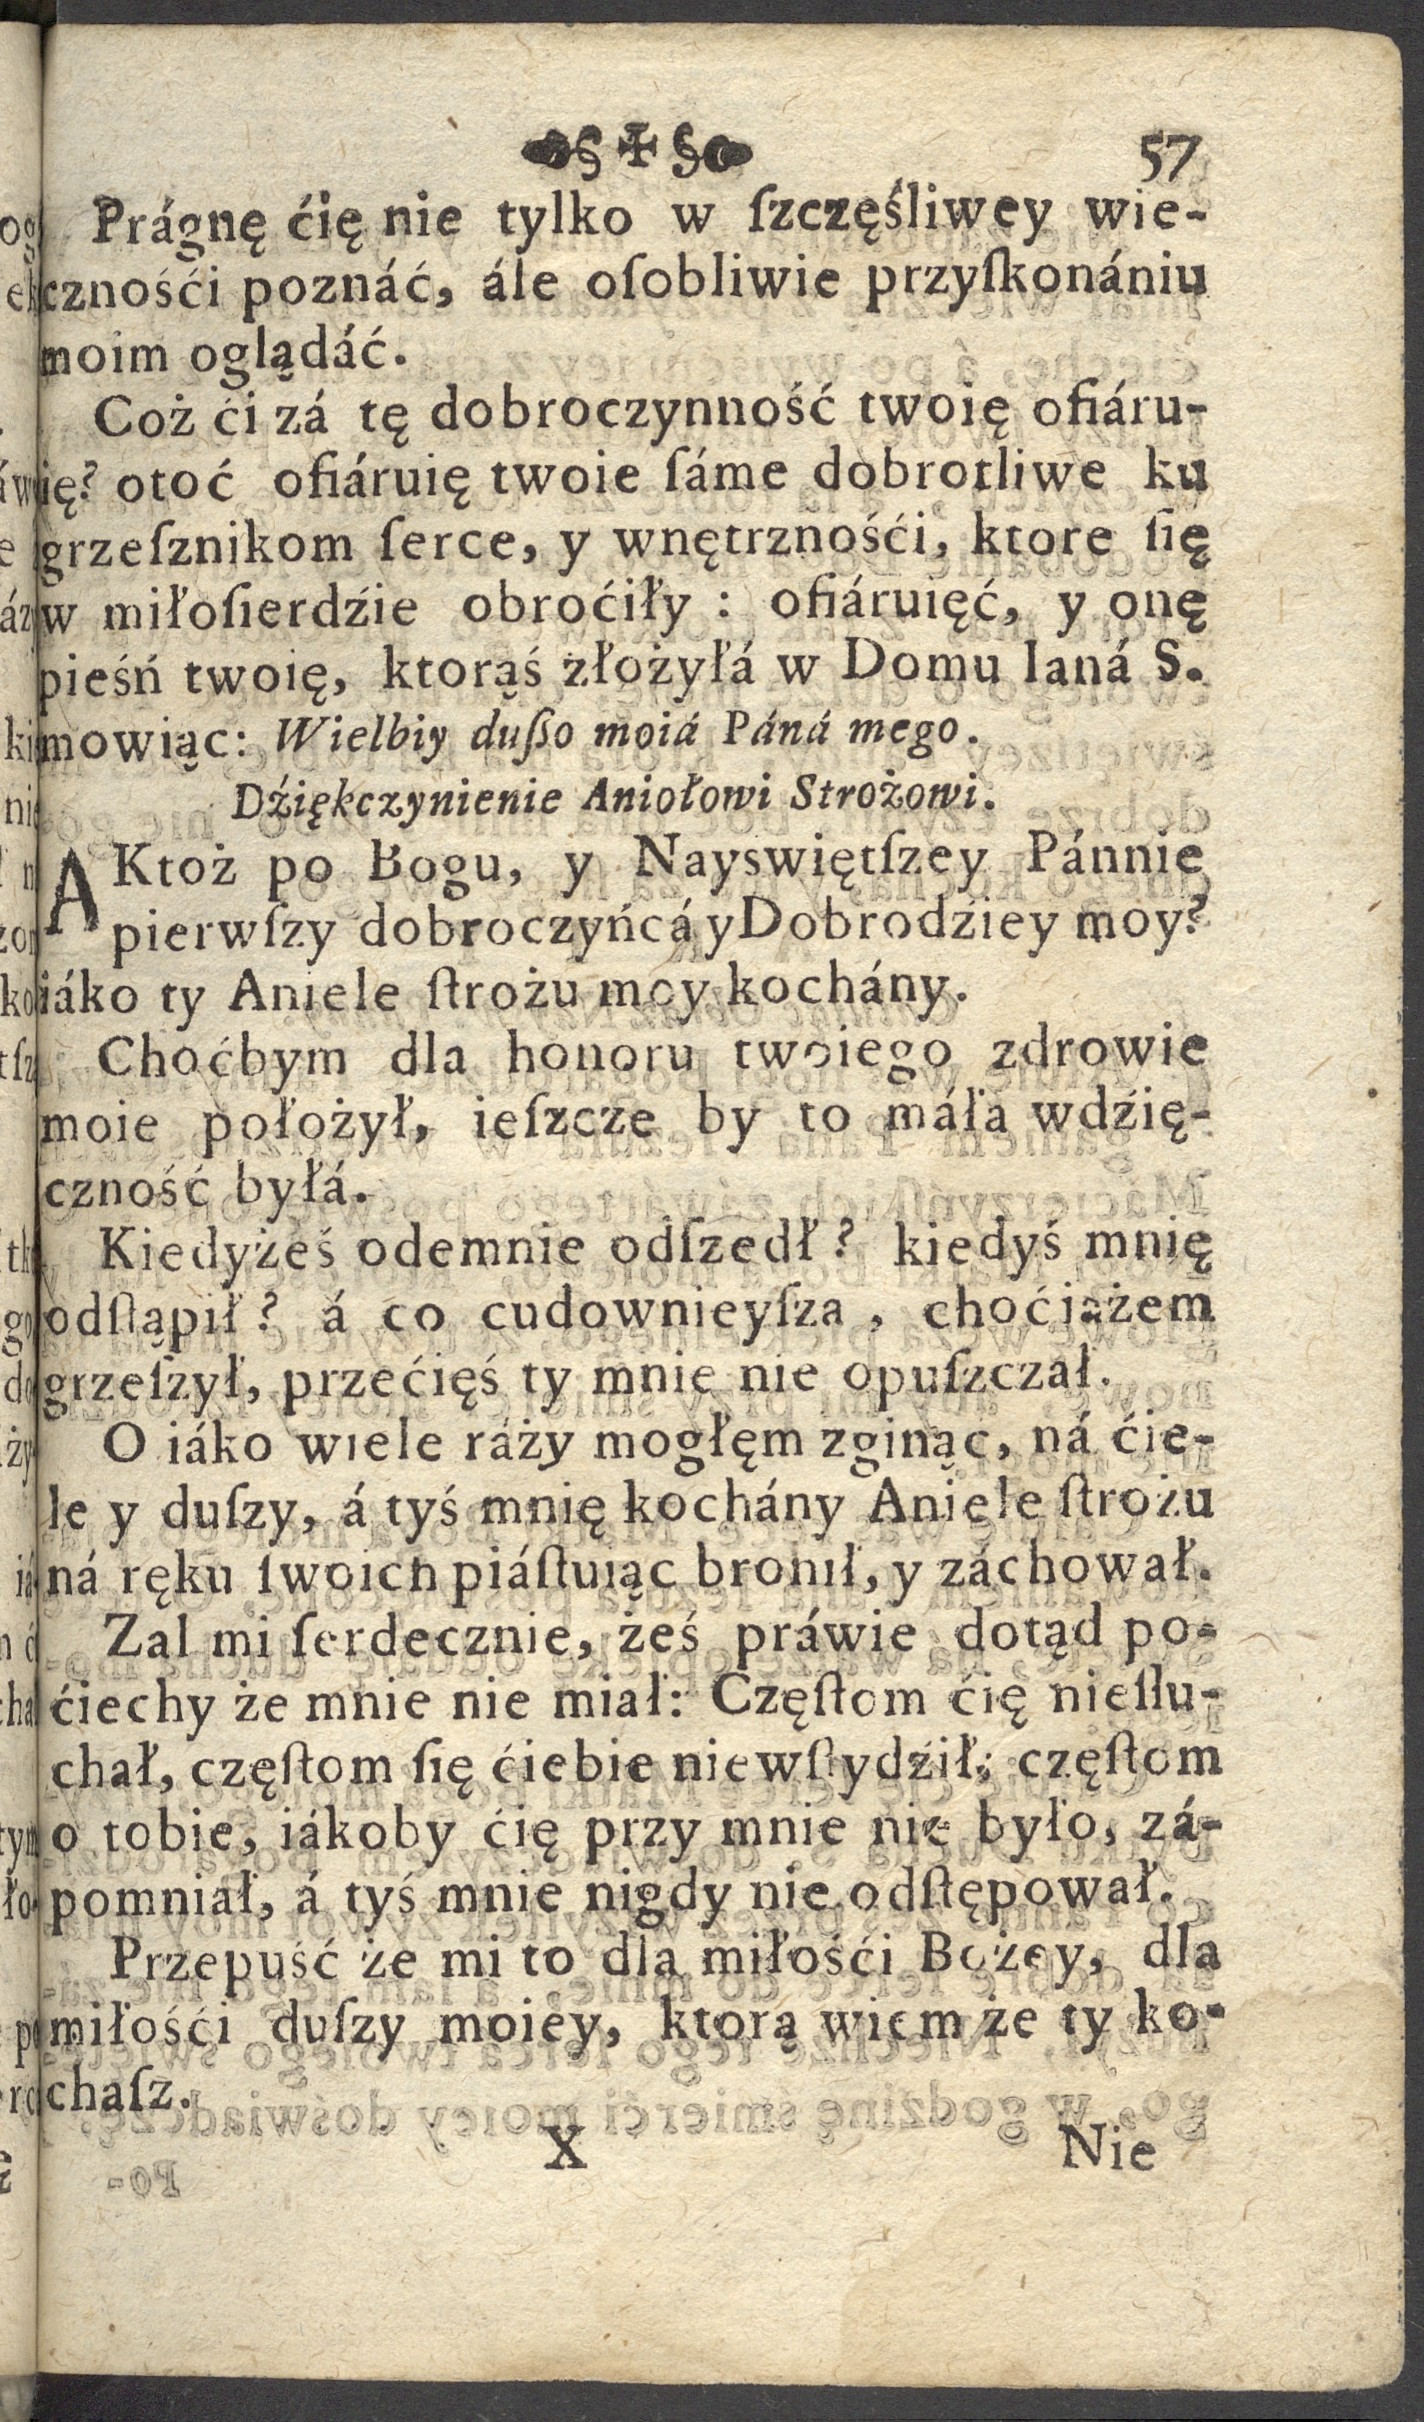 § ✠ § 57
Prágnę ćię nie tylko w ſzczęśliwey wie-
cznośći poznáć, ále oſobliwie przyſkonániu
moim oglądáć.
Coż ći zá tę dobroczynność twoię ofiáru-
ię? otoć ofiáruię twoie ſáme dobrotliwe ku
grzeſznikom ſerce, y wnętrznośći, ktore ſię
w miłoſierdźie obroćiły : ofiáruięć, y onę
pieśń twoię, ktorąś złożyłá w Domu Ianá S.
mowiąc: Wielbiy dußo moiá Páná mego.
Dźiękczynienie Aniołowi Strożowi.
A Ktoż po Bogu, y Nayswiętſzey Pánnie
pierwſzy dobroczyńcá y Dobrodźiey moy?
iáko ty Aniele ſtrożu moy kochány.
Choćbym dla honoru twoiego zdrowie
moie położył, ieſzcze by to máła wdźię-
czność byłá.
Kiedyżeś odemnie odſzedł? kiedyś mnię
odſtąpił? á co cudownieyſza, choćiażem
grzeſzył, przećięś ty mnie nie opuſzczał.
O iáko wiele ráży mogłęm zginąc, ná ćie-
le y duſzy, á tyś mnię kochány Aniele ſtrożu
ná ręku ſwoich piáſtuiąc bronił, y záchował.
Zal mi ſerdecznie, żeś práwie dotąd po-
ćiechy że mnie nie miał: Częſtom ćię nieſłu-
chał, częſtom ſię ćiebie niewſtydźił; częſtom
o tobie, iákoby ćię przy mnie nie było, zá-
pomniał, á tyś mnie nigdy nie odſtępował.
Przepuść że mi to dla miłośći Bożey, dla
miłośći duſzy moiey, ktorą wiem że ty ko-
chaſz.
X Nie